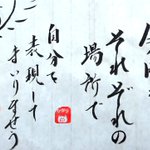 それぞれの
場所で
自分を
表現して
まいりませう